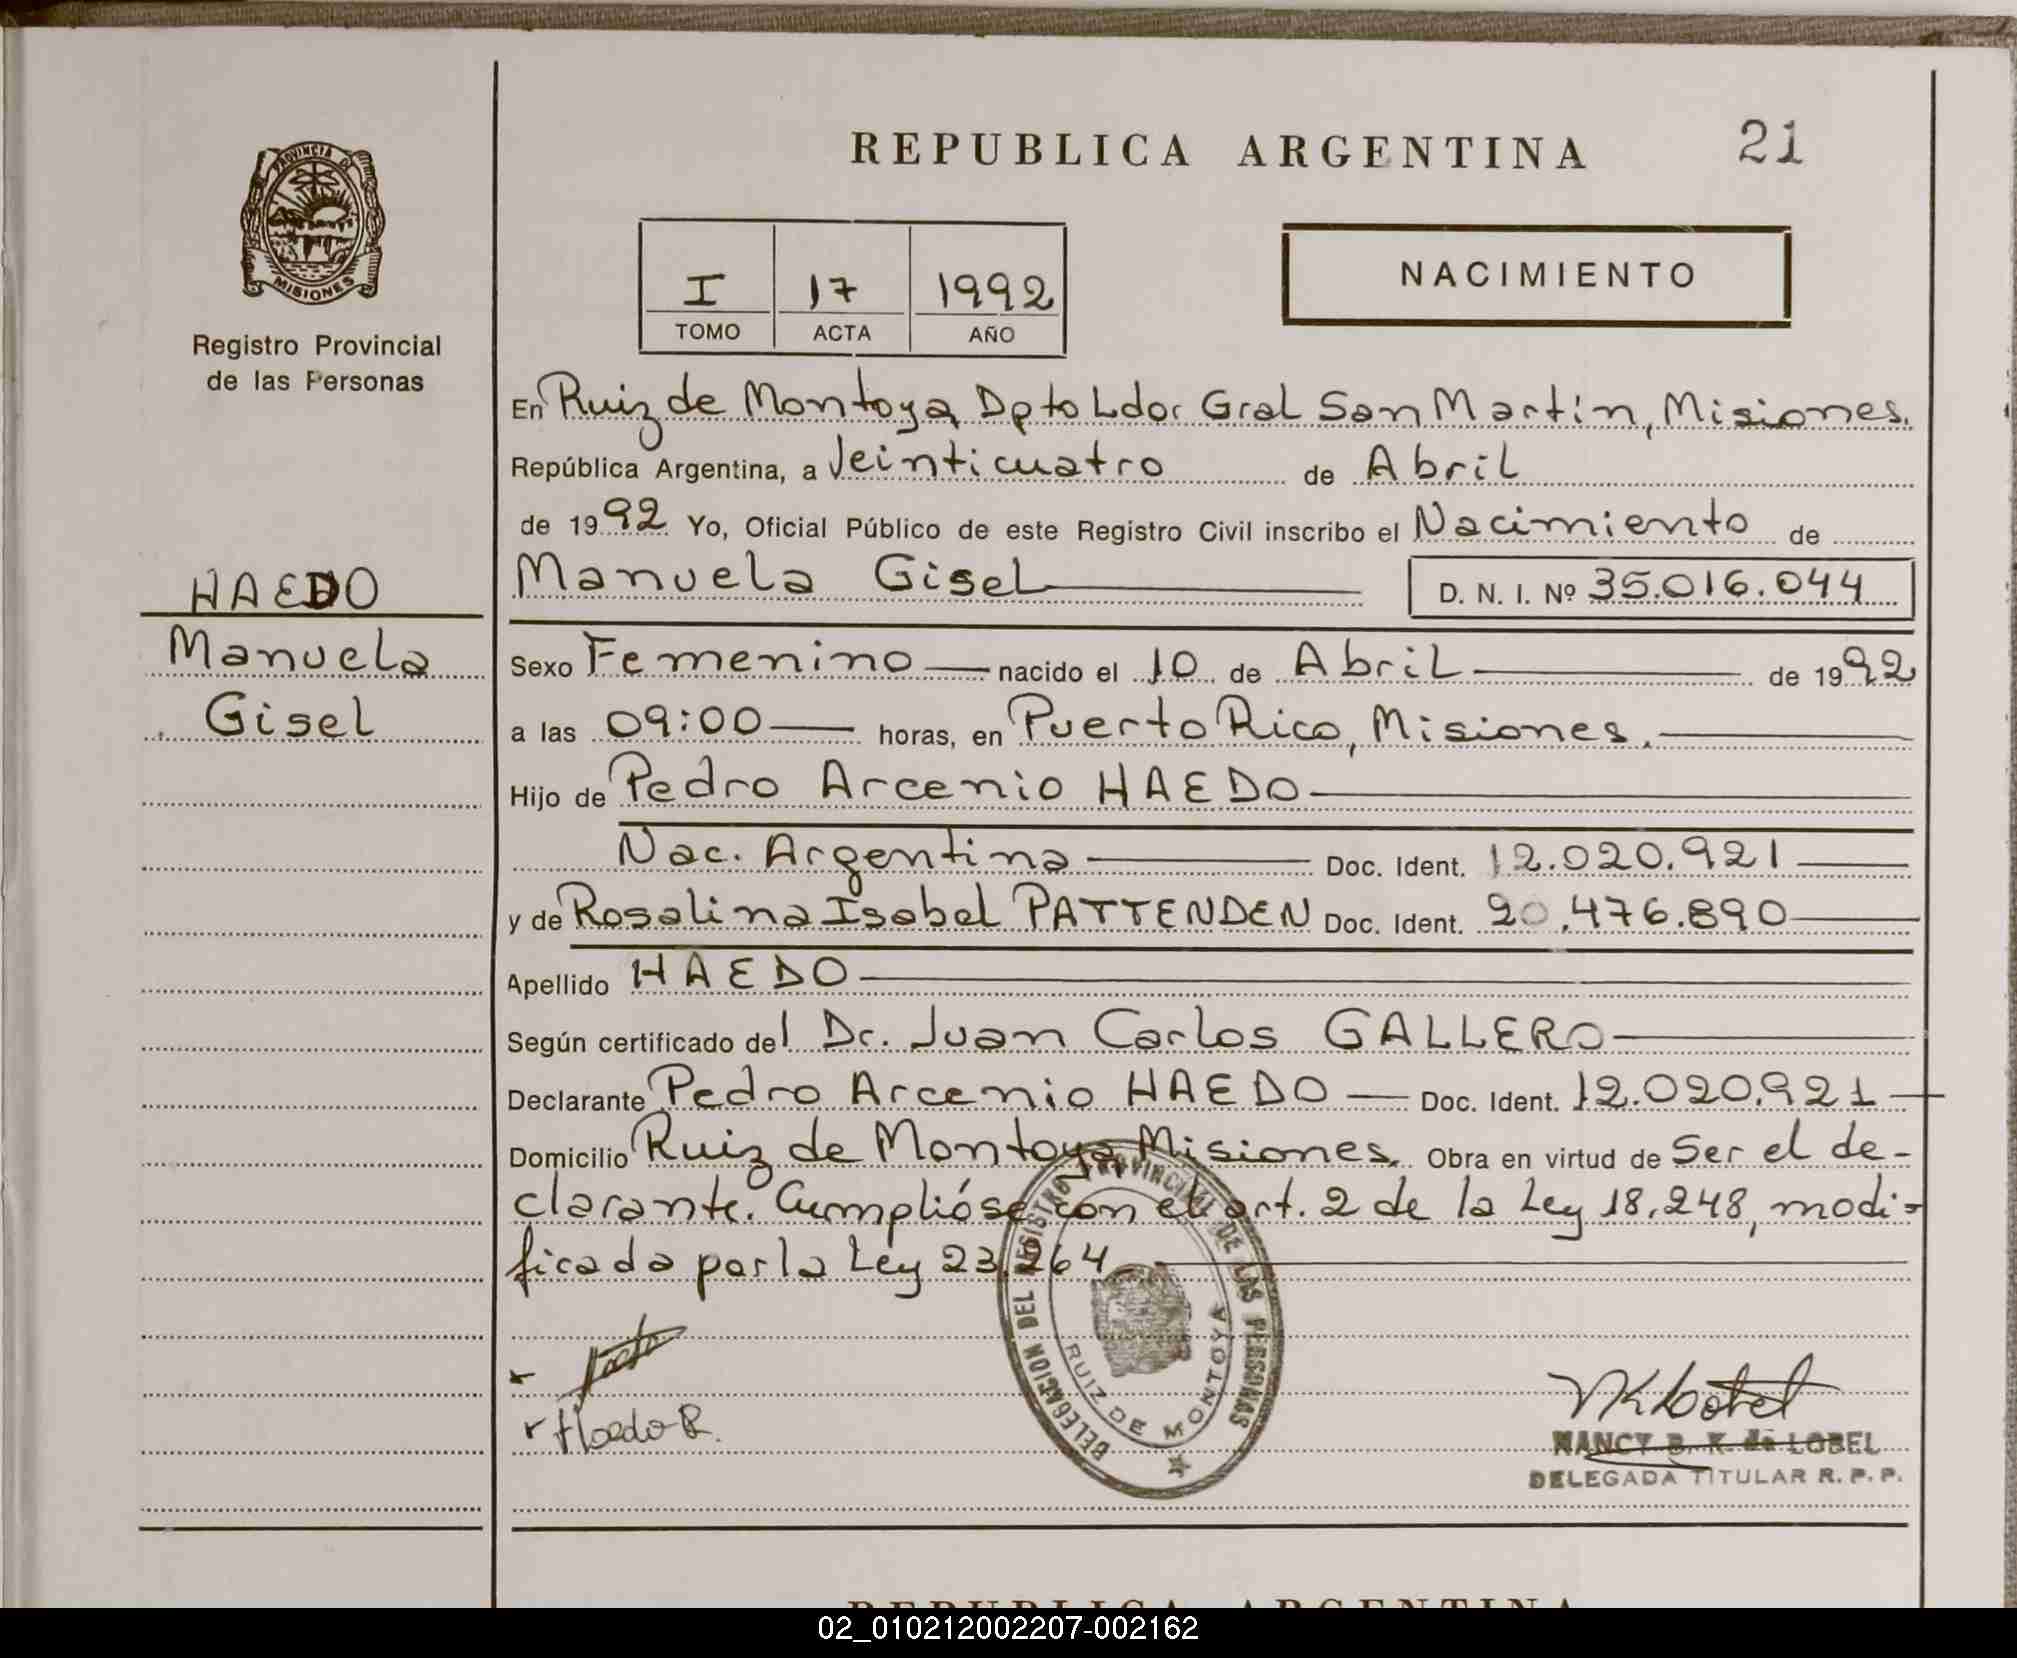 REPUBLICA ARGENTINA 21
PROVINCIA DE
MISIONES
Registro Provincial
de las Personas
I 17 1992
TOMO ACTA AÑO
NACIMIENTO
En Ruiz de Montoya Dpto Ldor Gral San Martin, Misiones.
República Argentina, a Veinticuatro de Abril
de 1992 Yo, Oficial Público de este Registro Civil inscribo el Nacimiento de
Manuela Gisel D. N. I. Nº 35.016.044
HAEDO
Manuela
Gisel
Sexo Femenino nacido el 10 de Abril de 1992
a las 09:00 horas, en Puerto Rico, Misiones.
Hijo de Pedro Arcenio HAEDO
Nac. Argentina Doc. Ident. 12.020.921
y de Rosalina Isabel PATTENDEN Doc. Ident. 20.476.890
Apellido HAEDO
Según certificado del Dr. Juan Carlos GALLERO
Declarante Pedro Arcenio HAEDO Doc. Ident. 12.020.921
Domicilio Ruiz de Montoya, Misiones. Obra en virtud de Ser el de-
clarante. Cumplióse con el art. 2 de la Ley 18.248, modi-
ficada por la Ley 23.264
DELEGACION DEL REGISTRO PROVINCIAL DE LAS PERSONAS
RUIZ DE MONTOYA
Haedo R.
NANCY B. K. de LOBEL
DELEGADA TITULAR R. P. P.
REPUBLICA ARGENTINA
02_010212002207-002162